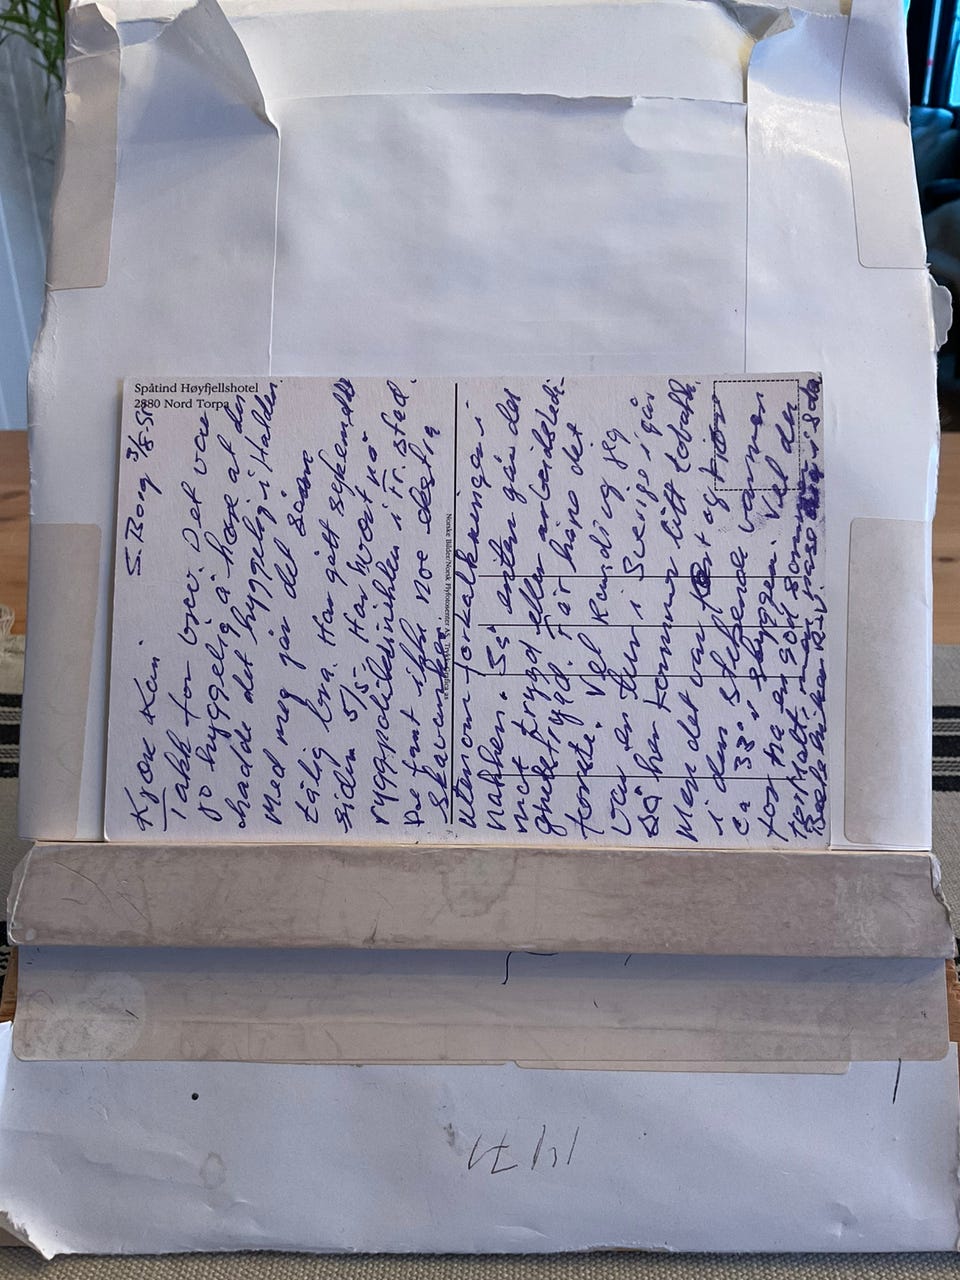 Spåtind Høyfjellshotel
2880 Nord Torpa
S. Borg 3/8-
Kjære Kari
Takk for brev. Det var
jo hyggelig å høre at du
hadde det hyggelig i Halden.
Med meg går det sånn
tålig bra. Har gått sykemeldt
siden 5/5. Har vært på
ryggpoliklinikken i Fr.sted.
De fant ikke noe
utenom forkalkninger i
nakken. Så enten går det
mot trygd eller arbeidsledi-
ghetstrygd. Får håpe det
første. Vel Randi og jeg
var en tur i Sverige i går
så her kommer litt tobakk
Men det var tørt og
i den stekende varmen
ca 33° i skyggen. Vel du
får ha en god sommer
Norske Bilder/Norsk Flyfotosenter AS